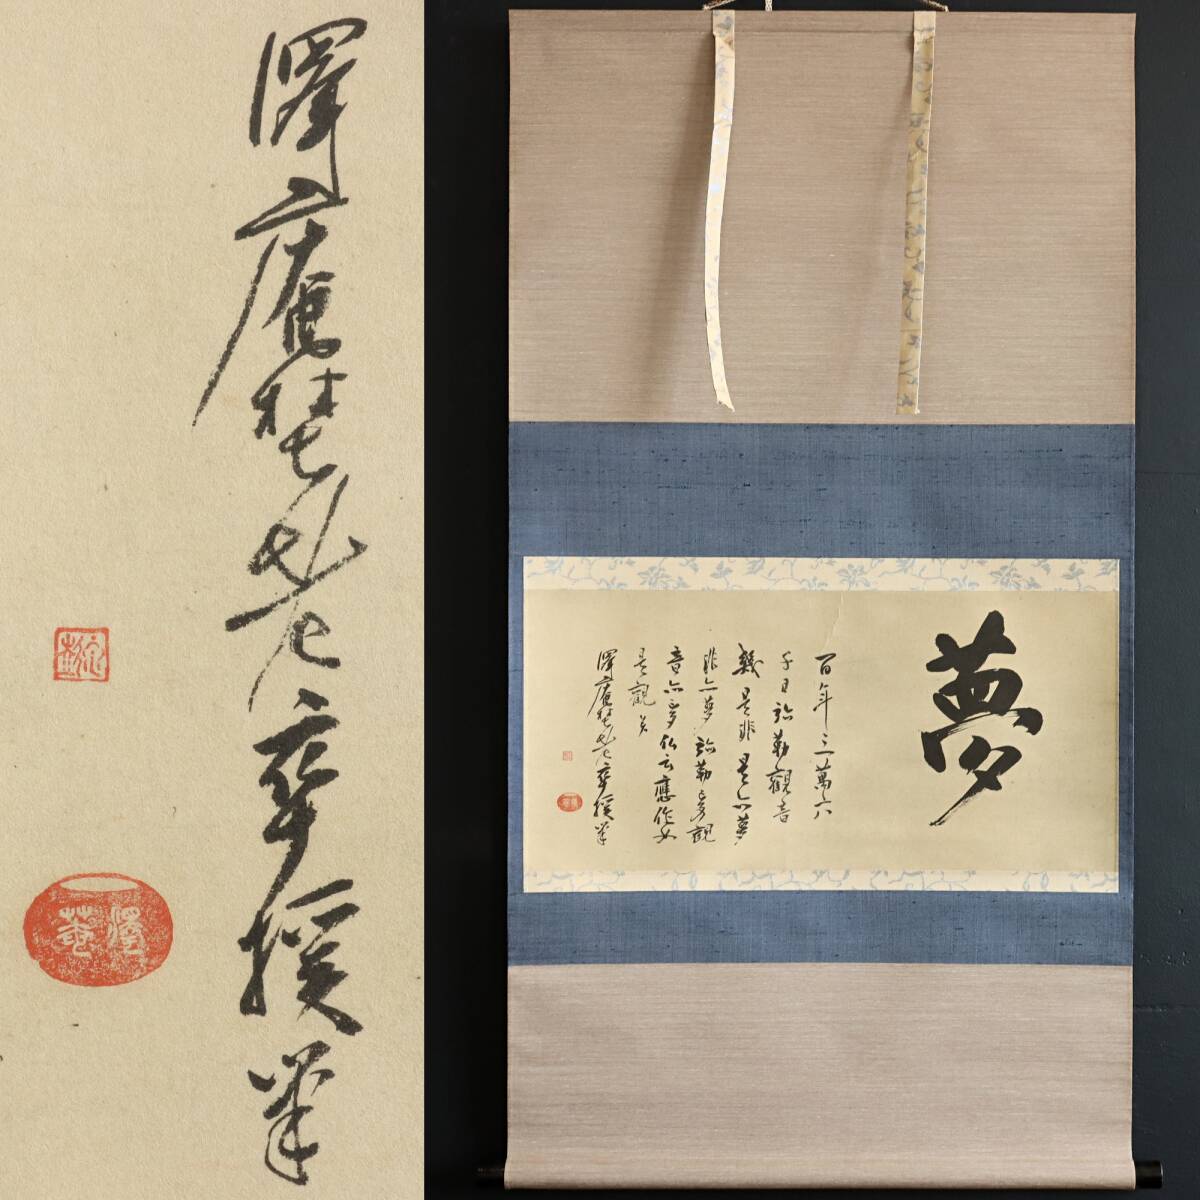 澤庵埜老卒援筆
澤庵
夢
百年三萬六
千日弥勒觀音
幾是非是亦夢
非亦夢弥勒夢觀
音亦夢仏云應作如
是觀矣
澤庵埜老卒援筆